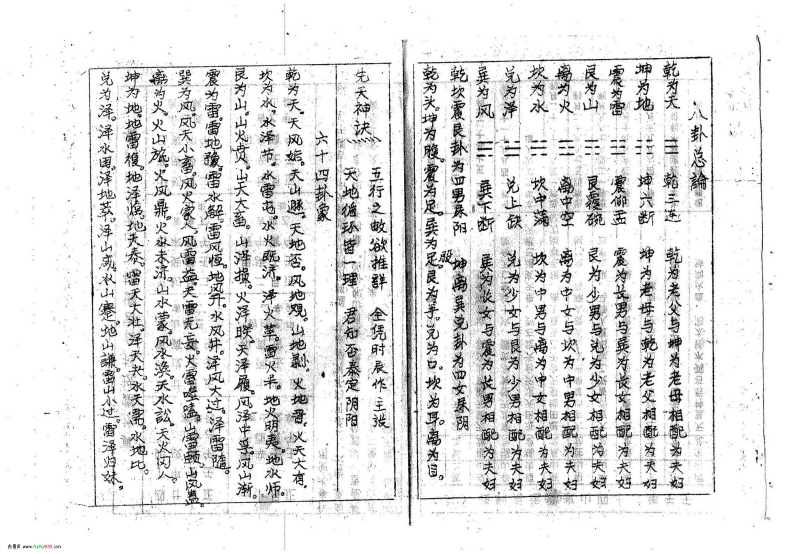 八卦总論
乾为天 ☰ 乾三连 乾为老父与坤为老母相配为夫妇
坤为地 ☷ 坤六断 坤为老母与乾为老父相配为夫妇
震为雷 ☳ 震仰盂 震为长男与巽为长女相配为夫妇
艮为山 ☶ 艮覆碗 艮为少男与兑为少女相配为夫妇
离为火 ☲ 离中空 离为中女与坎为中男相配为夫妇
坎为水 ☵ 坎中满 坎为中男与离为中女相配为夫妇
兑为泽 ☱ 兑上缺 兑为少女与艮为少男相配为夫妇
巽为风 ☴ 巽下断 巽为长女与震为长男相配为夫妇
乾坎震艮卦为四男属阳 坤离巽兑卦为四女属阴
乾为头。坤为腹。震为足。巽为股。艮为手。兑为口。坎为耳。离为目。
先天神诀 五行之故欲推群 全凭时辰作主张
天地循环皆一理 君知否泰定阴阳
六十四卦象
乾为天。天风姤。天山遯。天地否。风地观。山地剥。火地晋。火天大有。
坎为水。水泽节。水雷屯。水火既济。泽火革。雷火丰。地火明夷。地水师。
艮为山。山火贲。山天大畜。山泽损。火泽睽。天泽履。风泽中孚。风山渐。
震为雷。雷地豫。雷水解。雷风恒。地风升。水风井。泽风大过。泽雷隨。
巽为风。风天小畜。风火家人。风雷益。天雷无妄。火雷噬嗑。山雷颐。山风蛊。
离为火。火山旅。火风鼎。火水未济。山水蒙。风水涣。天水訟。天火同人。
坤为地。地雷復。地泽临。地天泰。雷天大壮。泽天夬。水天需。水地比。
兑为泽。泽水困。泽地萃。泽山咸。水山蹇。地山謙。雷山小过。雷泽归妹。